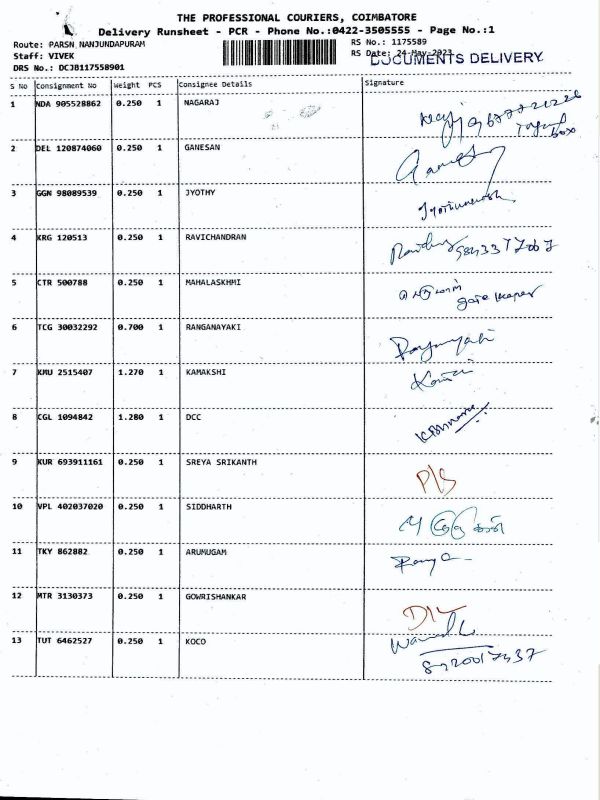 THE PROFESSIONAL COURIERS, COIMBATORE
Delivery Runsheet - PCR - Phone No.:0422-3505555 - Page No.:1
Route: PARSN NANJUNDAPURAM
RS No.: 1175589
Staff: VIVEK
RS Date: 24-May-2023
DOCUMENTS DELIVERY
DRS No.: DCJB117558901
S No Consignment No Weight PCS Consignee Details Signature
1 NDA 905528862 0.250 1 NAGARAJ
2 DEL 120874060 0.250 1 GANESAN
3 GGN 98089539 0.250 1 JYOTHY
4 KRG 120513 0.250 1 RAVICHANDRAN
5 CTR 500788 0.250 1 MAHALASKHMI
gate keeper
6 TCG 30032292 0.700 1 RANGANAYAKI
7 KMU 2515407 1.270 1 KAMAKSHI
8 CGL 1094842 1.280 1 DCC
9 KUR 693911161 0.250 1 SREYA SRIKANTH
P/S
10 VPL 402037020 0.250 1 SIDDHARTH
11 TKY 862882 0.250 1 ARUMUGAM
12 MTR 3130373 0.250 1 GOWRISHANKAR
13 TUT 6462527 0.250 1 KOCO